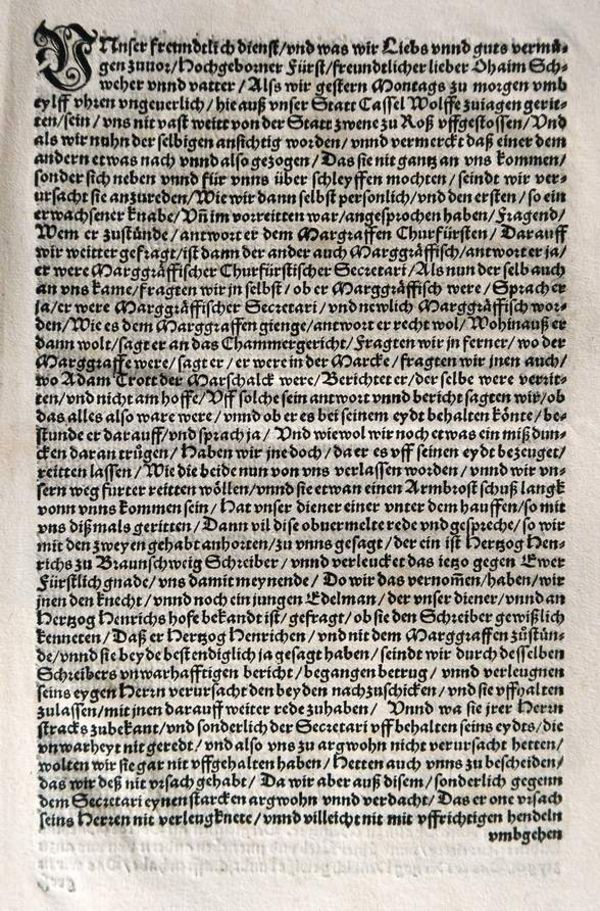 VNnser freundtlich dienst/vnd was wir Liebs vnnd guts vermü⸗
gen zuuor/Hochgeborner Fürst/freundtlicher lieber Ohaim Sch⸗
weher vnnd vatter/Alss wir gestern Montags zu morgen vmb
eylff vhren vngeuerlich/hie auß vnser Statt Cassel Wolffe zuiagen gerit⸗
ten/sein/vns nit vast weitt von der Statt zwene zu Roß vffgestossen/Vnd
als wir nuhn der selbigen ansichtig worden/vnnd vermerckt daß einer dem
andern etwas nach vnnd also gezogen/Das sie nit gantz an vns kommen/
sonder sich neben vnnd für vnns über schleyffen mochten/seindt wir ver⸗
ursacht sie anzureden/Wie wir dann selbst personlich/vnd den ersten/so ein
erwachsener knabe/Vñ im vorreitten war/angesprochen haben/Fragend/
Wem er zustünde/antwort er dem Margraffen Churfürsten/Darauff
wir weitter gefragt/ist dann der ander auch Marggräffisch/antwort er ja/
er were Marggräffischer Churfürstischer Secretari/Als nun der selb auch
an vns kame/fragten wir jn selbst/ob er Marggräffisch were/Sprach er
ja/er were Marggräffischer Secretari/vnd newlich Marggräffisch wor⸗
den/Wie es dem Marggraffen gienge/antwort er recht wol/Wohinauß er
dann wolt/sagt er an das Chammergericht/Fragten wir jn ferner/wo der
Marggraffe were/sagt er/er were in der Marcke/fragten wir jnen auch/
wo Adam Trott der Marschalck were/Berichtet er/der selbe were veritt⸗
ten/vnd nicht am hoffe/Vff solche sein antwort vnnd bericht sagten wir/ob
das alles also ware were/vnnd ob er es bei seinem eydt behalten könte/be⸗
stunde er darauff/vnd sprach ja/Vnd wiewol wir noch etwas ein miß dun⸗
cken daran trügen/Haben wir jne doch/da er es vff seinen eydt bezeuget/
reitten lassen/Wie die beide nun von vns verlassen worden/vnnd wir vn⸗
sern weg furter reitten wöllen/vnnd sie etwan einen Armbrost schuß langk
vonn vnns kommen sein/Hat vnser diener einer vnter dem hauffen/so mit
vns dißmals geritten/Dann vil dise obuermelte rede vnd gespreche/so wir
mit den zweyen gehabt anhorten/zu vnns gesagt/der ein ist Hertzog Hen⸗
richs zu Braunschweig Schreiber/vnnd verleucket das ietzo gegen Ewer
Fürstlich gnade/vns damit meynende/Do wir das vernom̃en/haben/wir
jnen den knecht/vnnd noch ein jungen Edelman/der vnser diener/vnnd an
Hertzog Henrichs hofe bekandt ist/gefragt/ob sie den Schreiber gewißlich
kenneten/Daß er Hertzog Henrichen/vnd nit dem Marggraffen züstün⸗
de/vnnd sie beyde bestendiglich ja gesagt haben/seindt wir durch desselben
Schreibers vnwarhafftigen bericht/begangen betrug/vnnd verleugnen
seins eygen Herrn verursacht den beyden nachzuschicken/vnd sie vffhalten
zulassen/mit jnen darauff weiter rede zuhaben/Vnnd wa sie jrer Herrn
stracks zubekant/vnd sonderlich der Secretari vff behalten seins eydts/die
vnwarheyt nit geredt/vnd also vns zu argwohn nicht verursacht hetten/
wolten wir sie gar nit vffgehalten haben/Hetten auch vnns zu bescheiden/
das wir deß nit vrsach gehabt/Da wir aber auß disem/sonderlich gegenn
dem Secretari eynen starcken argwohn vnnd verdacht/Das er one vrsach
seins Herren nit verleugknete/vnnd villeicht nit mit vffrichtigen hendeln
vmbgehen